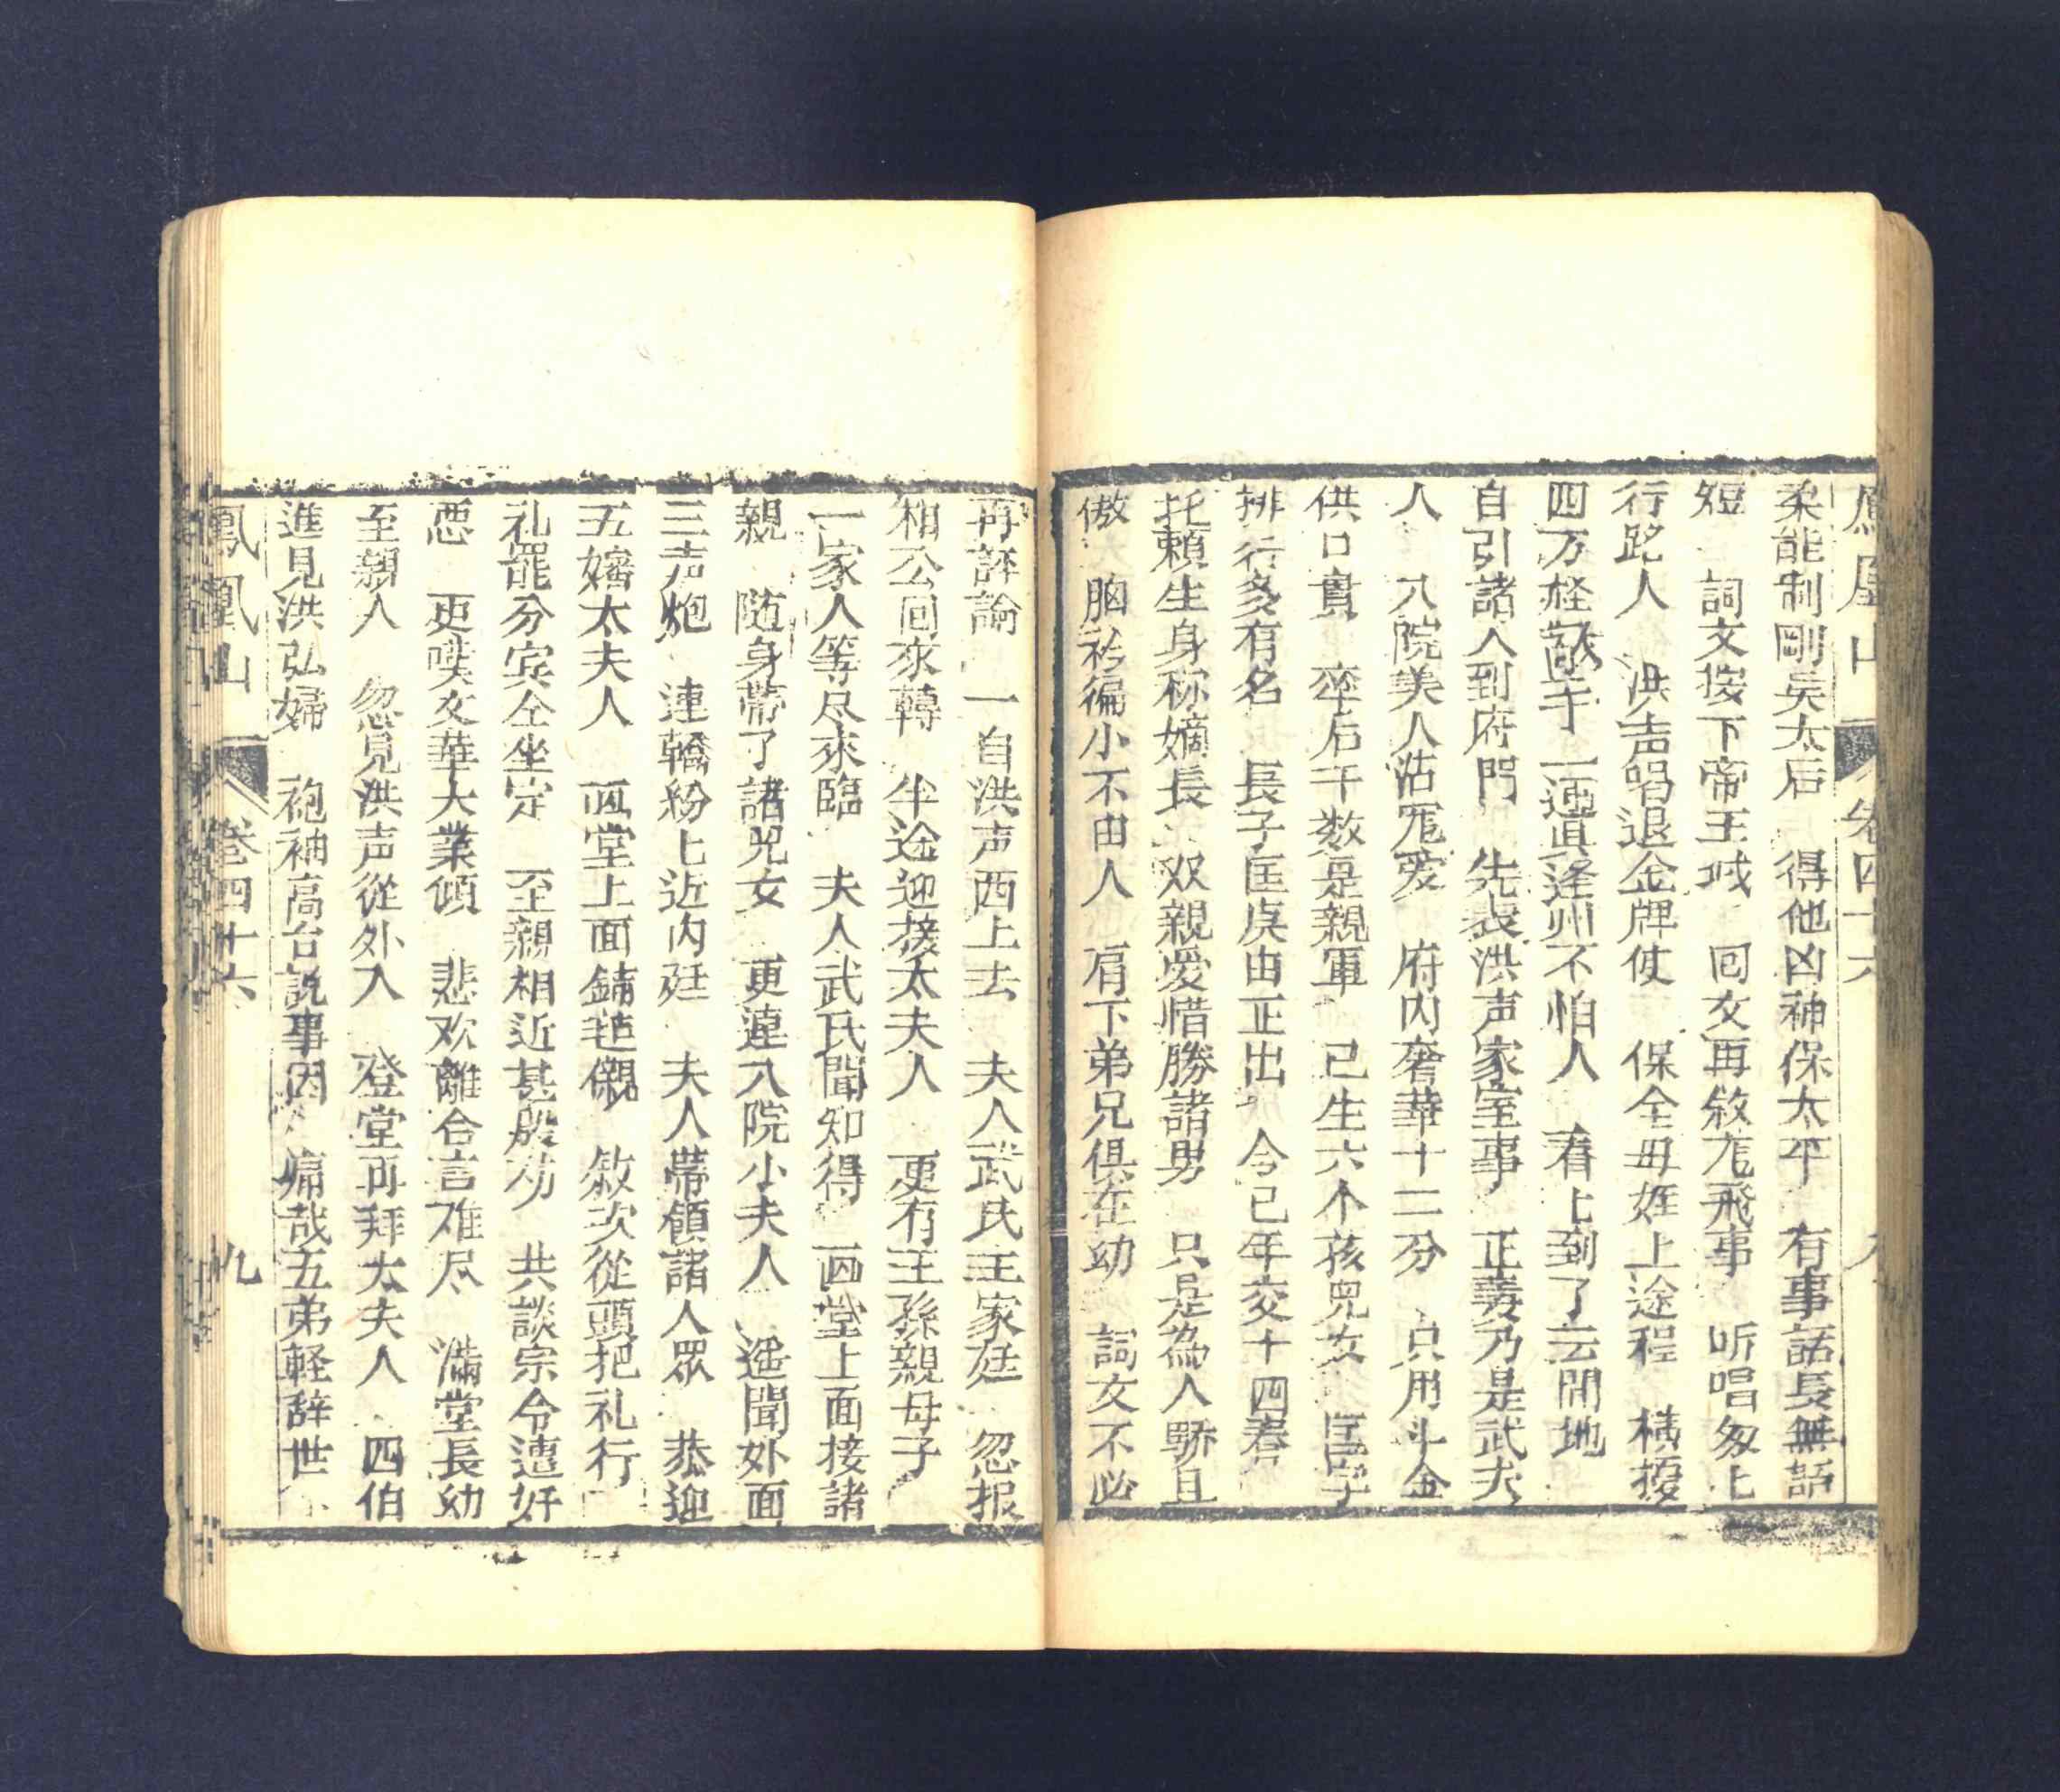 鳳凰山 卷四十六
柔能制剛吳太后 得他凶神保太平 有事話長無語
短 詞文按下帝王城 回文再敘尨飛事 听唱匆上
行路人 洪声唱退金牌使 保全毋姪上途程 橫擾
四万经 千 一 真逢州不怕人 看上到了云開地
自引諸人到府門 先表洪声家室事 正妻乃是武夫
人 八院美人沾寵爱 府內奢華十二分 只用斗金
供口實 卒后千数是親軍 已生六个孩兒女 匡字
排行多有名 長子匡虎由正出 今已年交十四春
托賴生身称嫡長 双親愛惜勝諸男 只是為人驕且
傲 胸衫褊小不由人 肩下弟兄俱在幼 詞文不必
再評論 一自洪声西上去 夫人武氏主家廷 忽报
相公回來轉 半途迎接太夫人 更有王孫親母子
一家人等尽來臨 夫人武氏聞知得 画堂上面接諸
親 随身帶了諸兒女 更連八院小夫人 遥聞外面
三声炮 連轎紛上近内廷 夫人帶領諸人眾 恭迎
五嬸太夫人 画堂上面鋪毡儭 敘次從頭把礼行
礼罷分宾仝坐定 至親相近甚殷功 共談宗令遭奸
恶 更嘆文華大業傾 悲欢離合言难尽 满堂長幼
至親人 忽見洪声從外入 登堂再拜太夫人 四伯
進見洪弘婦 袍袖高台説事因 痛哉五弟軽辞世
鳳凰山 卷四十六 九